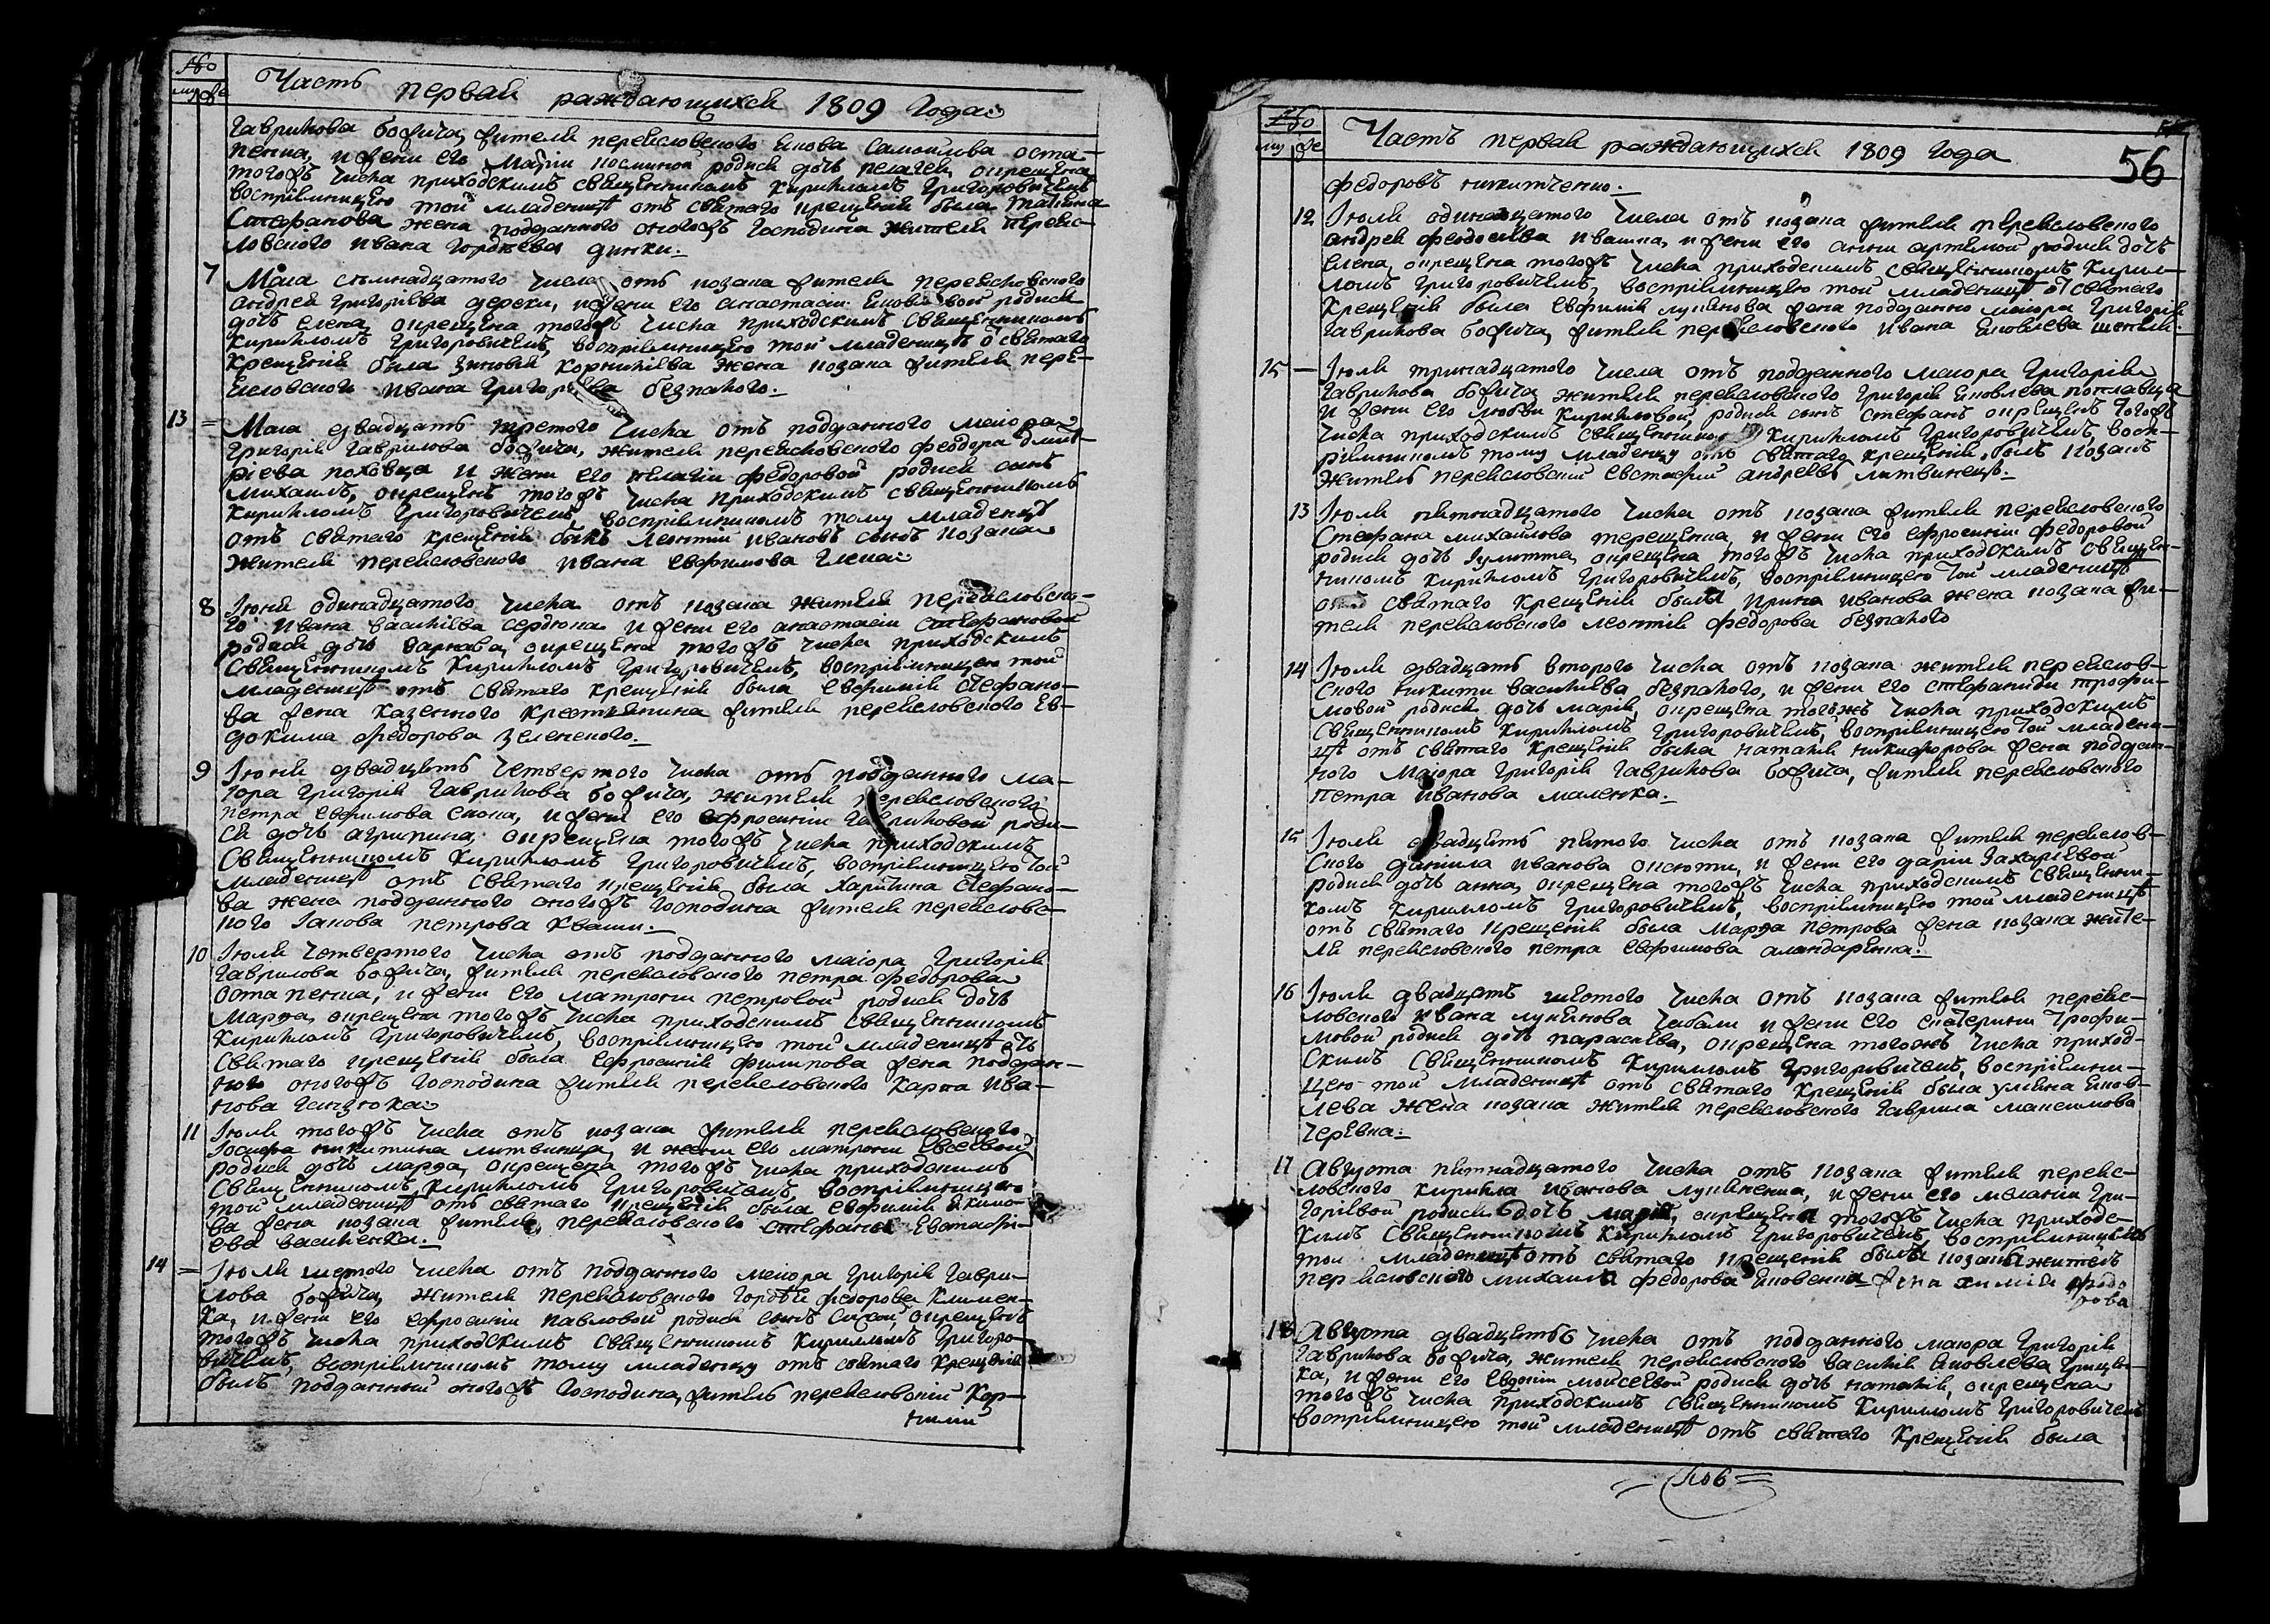 Часть первая раждающихся 1809 Года
Гаврилова божича, жителя переясловского Якова Самойлова оста-
пенка, и жени его Марии родися дочь пелагея, окрещена
тогожъ числа приходскимъ священникомъ Кирилломъ Григоровичемъ
воспріемницею той младеницѣ отъ святаго крещенія была татіяна
Стефанова жена подданного оногожъ Господина жителя переяс-
ловского Ивана Гордѣева
7 Маія числа отъ козака жителя переясловского
андрея григоріева и жени его анастасіи родися
дочь елена окрещена тогожъ числа приходскимъ священникомъ
Кирилломъ Григоровичемъ, воспріемницею той младеницѣ о святаго
крещенія была Зиновія Корниліева жена козака жителя пере-
ясловского Ивана Григоріева безпалого.
13 Маія двадцать третого числа отъ подданного маіора
Григорія Гаврилова божича, жителя переясловского Феодора Дмит-
ріева и жени его пелагіи федоровой родися синъ
михаилъ, окрещенъ тогожъ числа приходскимъ священникомъ
Кирилломъ Григоровичемъ, воспріемникомъ тому младенцу
отъ святаго крещенія былъ Леонтій Ивановъ синъ козака
жителя переясловского Ивана Евфимова
8 Іюня одинадцатого числа отъ козака жителя переясловско-
го Ивана василіева сердюка и жени его анастасіи Стефановой
родися дочь варвара, окрещена тогожъ числа приходскимъ
Священникомъ Кирилломъ Григоровичемъ, воспріемницею той
младеницѣ отъ святаго крещенія была Евфимія Стефано-
ва жена казенного крестянина жителя переясловского Ев-
докима Федорова зеленского.
9 Іюня двадцать четвертого числа отъ подданного ма-
іора Григорія Гаврилова божича, жителя переясловского
петра Евфимова и жени его ефросиніи Гавриловой роди-
ся дочь агрипина, окрещена тогожъ числа приходскимъ
Священникомъ Кирилломъ Григоровичемъ, воспріемницею той
младеницѣ отъ святаго крещенія была харитина Стефано-
ва жена подданного оногожъ господина жителя переяслов-
кого Іакова петрова Кваши.
10 Іюля четвертого числа отъ подданного маіора Григорія
Гаврилова божича, жителя переясловского петра Федорова
остапенка, и жени его матрони петровой родися дочь
Марфа, окрещена тогожъ числа приходскимъ священникомъ
Кирилломъ Григоровичемъ, воспріемницею той младеницѣ отъ
Святаго крещенія была Ефросинія филипова жена поддан-
ного оногожъ Господина жителя переясловского Карпа Ива-
нова
11 Іюля тогожъ числа отъ козака жителя переясловского
Іосифа никитина литвинца, и жени его матрони
родися дочь марфа, окрещена тогожъ числа приходскимъ
Священникомъ Кирилломъ Григоровичемъ, воспріемницею
той младеницѣ отъ святаго крещенія была Евфимія Якимо-
ва жена козака жителя переясловского стефана Евстафі-
ева василенка.
14 Іюля шестого числа отъ подданного маіора Григорія Гаври-
лова божича, жителя переясловского Гордѣя федорова Климен-
ка, и жени его ефросиніи павловой родися синъ окрещенъ
тогожъ числа приходскимъ священникомъ Кирилломъ Григоро-
вичемъ, воспріемникомъ тому младенцу отъ святаго крещенія
былъ подданный оногожъ Господина, житель переясловскій Кор-
нилій
56
Часть первая раждающихся 1809 Года
федоровъ никитченко.
12 Іюля одинадцатого числа отъ козака жителя переясловского
андрея федосіева ивашка, и жени его анни артемовой родися дочь
Елена окрещена тогожъ числа приходскимъ священникомъ Кирил-
ломъ Григоровичемъ, воспріемницею той младеницѣ о святаго
Крещенія была Евфимія лукянова жена подданного маіора Григорія
Гаврилова божича, жителя переясловского Ивана Яковлева
15 Іюля тринадцатого числа отъ подданного маіора Григорія
Гаврилова божича жителя переясловского Григорія Яковлева
и жени его любви Кириловой, родися синъ Стефанъ окрещенъ тогожъ
числа приходскимъ священникомъ Кирилломъ Григоровичемъ, восп-
ріемникомъ тому младенцу отъ святаго крещенія былъ козакъ
житель переясловскій Евстафій андреевъ литвинецъ.
13 Іюля пятнадцатого числа отъ козака жителя переясловского
Стефана михайлова терещенка, и жени его ефросиніи Федоровой
родися дочь Іулитта, окрещена тогожъ числа приходскимъ священ-
никомъ Кирилломъ Григоровичемъ, воспріемницею той младеницѣ
отъ святаго крещенія была Ирина Иванова жена козака жи-
теля переясловского леонтія федорова безпалого
14 Іюля двадцать второго числа отъ козака жителя переяслов-
ского никити василіева безпалого, и жени его стефаниди трофи-
мовой родися дочь марія, окрещена тогожъ числа приходскимъ
Священникомъ Кирилломъ Григоровичемъ, воспріемницею той младени-
цѣ отъ святаго крещенія была наталія никифорова жена поддан-
ного Маіора Григорія Гаврилова божича, жителя переясловского
петра Иванова маленка.
15 Іюля двадцать пятого числа отъ козака жителя переяслов-
ского даніила Иванова и жени его даріи Захаріевой
родися дочь анна, окрещена тогожъ числа приходскимъ священни-
комъ Кирилломъ Григоровичемъ, воспріемницею той младеницѣ
отъ святаго крещенія была Марфа петрова жена козака жите-
ля переясловского петра Евфимова
16 Іюля двадцать шестого числа отъ козака жителя переяс-
ловского Ивана лукянова и жени его екатерини трофи-
мовой родися дочь параскева, окрещена тогожъ числа приход-
скимъ священникомъ Кирилломъ Григоровичемъ, воспріемни-
цею той младеницѣ отъ святаго крещенія была уліяна Яков-
лева жена козака жителя переясловского Гаврила максимова
черевка.
17 Августа пятнадцатого числа отъ козака жителя переяс-
ловского Кирилла Иванова и жени его меланіи Гри-
горіевой родися дочь марія, окрещена тогожъ числа приходс-
кимъ священникомъ Кирилломъ Григоровичемъ, воспріемницею
той младеницѣ отъ святаго крещенія была козака жителя
переясловского михаила федорова Яковенка жена
18 Августа двадцять числа отъ подданного маіора Григорія
Гаврилова божича, жителя переясловского василія Яковлева Грицен-
ка, и жени его Евдокіи мойсеевой родися дочь наталія, окрещена
тогожъ числа приходскимъ священникомъ Кирилломъ Григоровичемъ
воспріемницею той младеницѣ отъ святаго Крещенія была